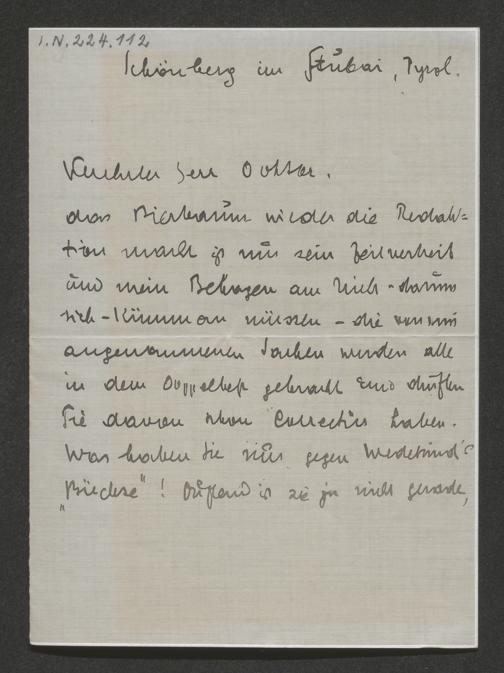 I.N. 224.112
Schönberg im Stubai, Tyrol.
Verehrter Herr Doktor.
dass Bierbaum wieder die Redak=
tion macht ist nur sein Zeitvertreib
und mein Behagen am Nich - darum
sich - kümmern müssen - die von mir
angenommenen Sachen werden alle
in dem Doppelheft gebracht und dürften
Sie davon schon Correctur haben.
Was haben Sie nur gegen Wedekind's
„Büchse"! Dufend ist sie ja nicht gerade,